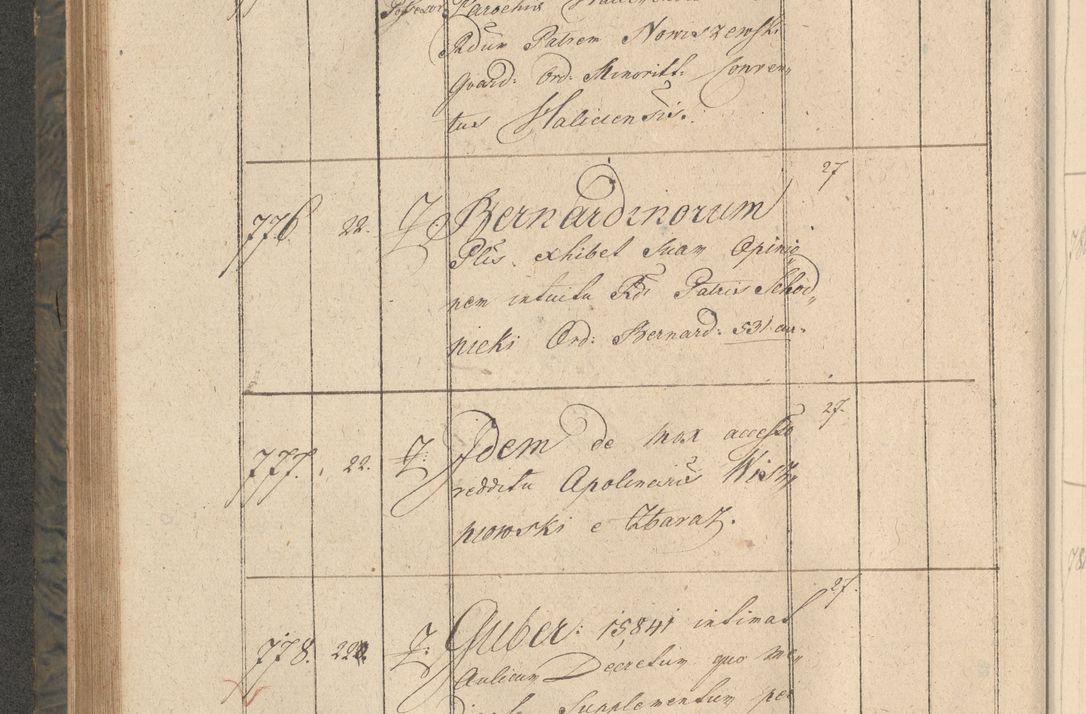 Parochus
Rdum Patrem Nowiszewski
Guard: Ord: Minorit: Conven„
tus Haliciensis.
27
776. 22. Z: Bernardinorum
Plis exhibet suam Opinio„
nem intuitu Rdi Patris Schod„
nicki Ord: Bernard: 531 cur.
27.
777. 22. Z: Idem de mox accesso
reddita Apolinaris Wisz„
niowski e Zbaraz.
27.
778. 22. Z: Guber: 15841 intimat
Aulicum Decretum quo me„
Supplementum per